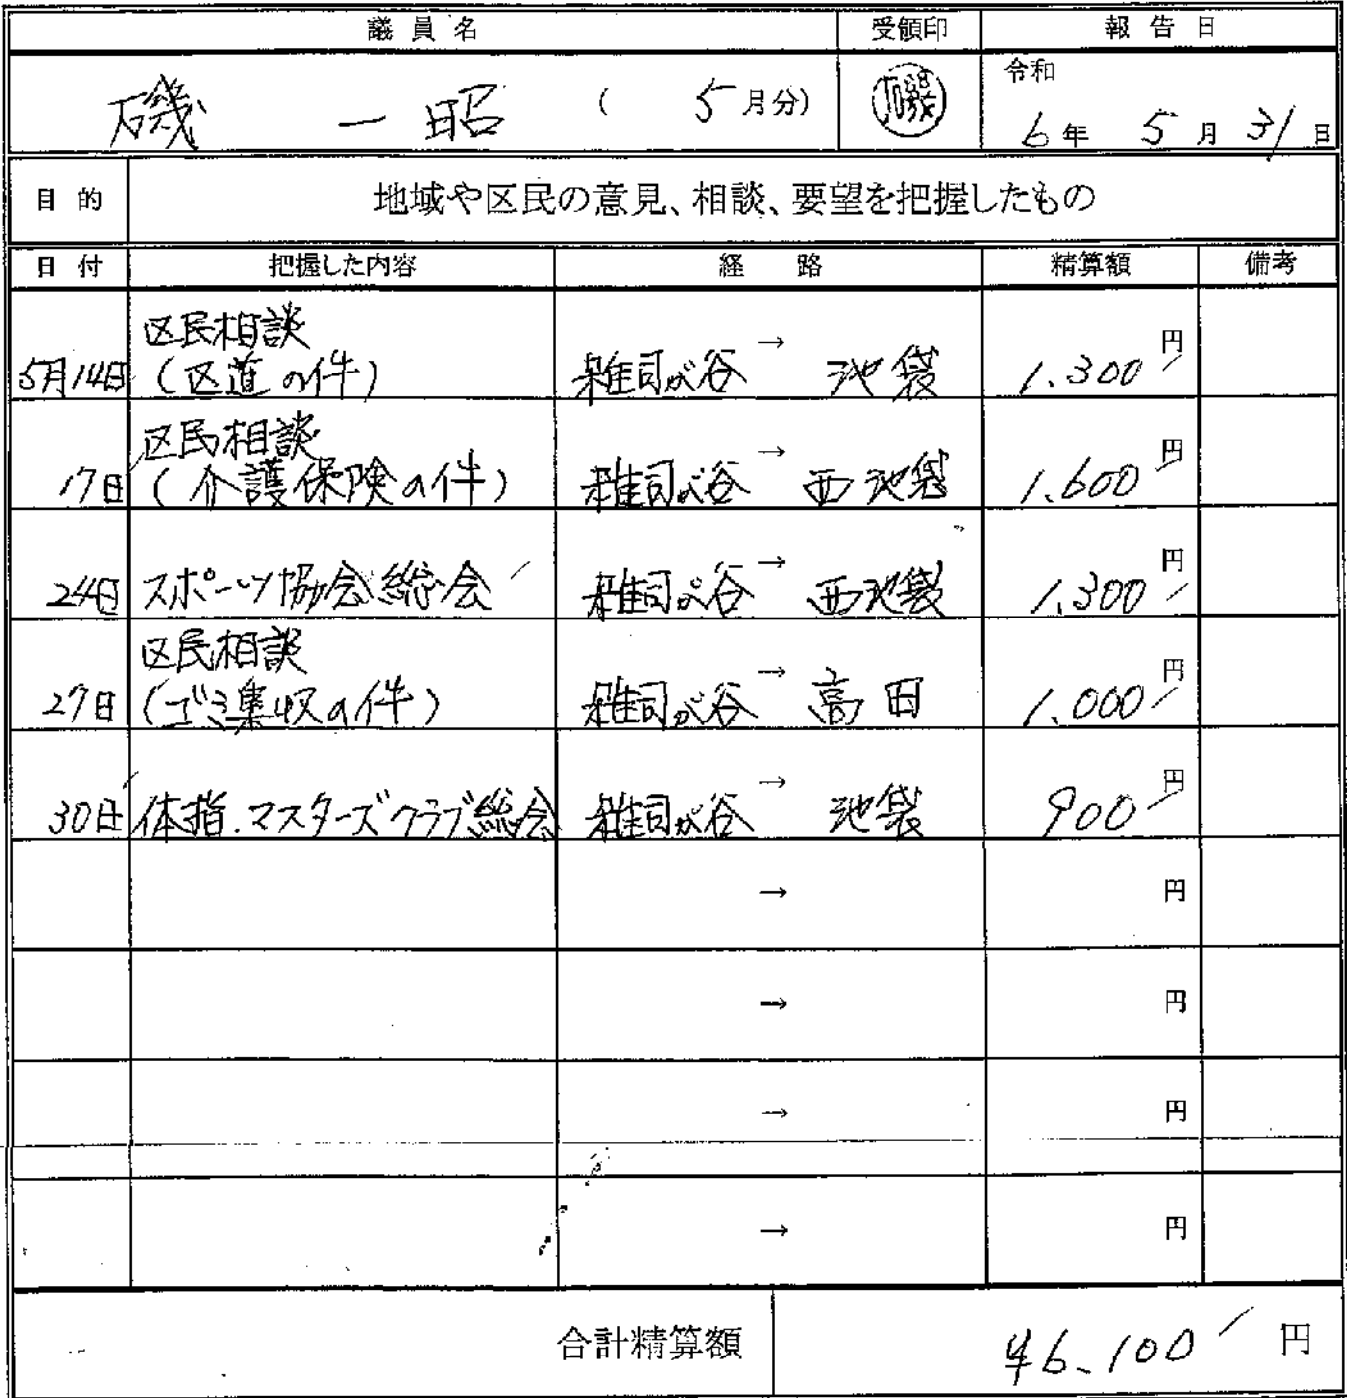 議員名 受領印 報告日
磯 一昭 ( 5月分) 磯 令和
6年 5月 31日
目的 地域や区民の意見、相談、要望を把握したもの
日付 把握した内容 経路 精算額 備考
区民相談
5月14日 (区道の件) 雑司が谷 → 池袋 1.300 円
区民相談
17日 (介護保険の件) 雑司が谷 → 西池袋 1.600 円
24日 スポーツ協会総会 雑司が谷 → 西池袋 1.300 円
区民相談
27日 (ゴミ集収の件) 雑司が谷 → 高田 1.000 円
30日 体指.マスターズクラブ総会 雑司が谷 → 池袋 900 円
→ 円
→ 円
→ 円
→ 円
合計精算額 ¥6.100 円